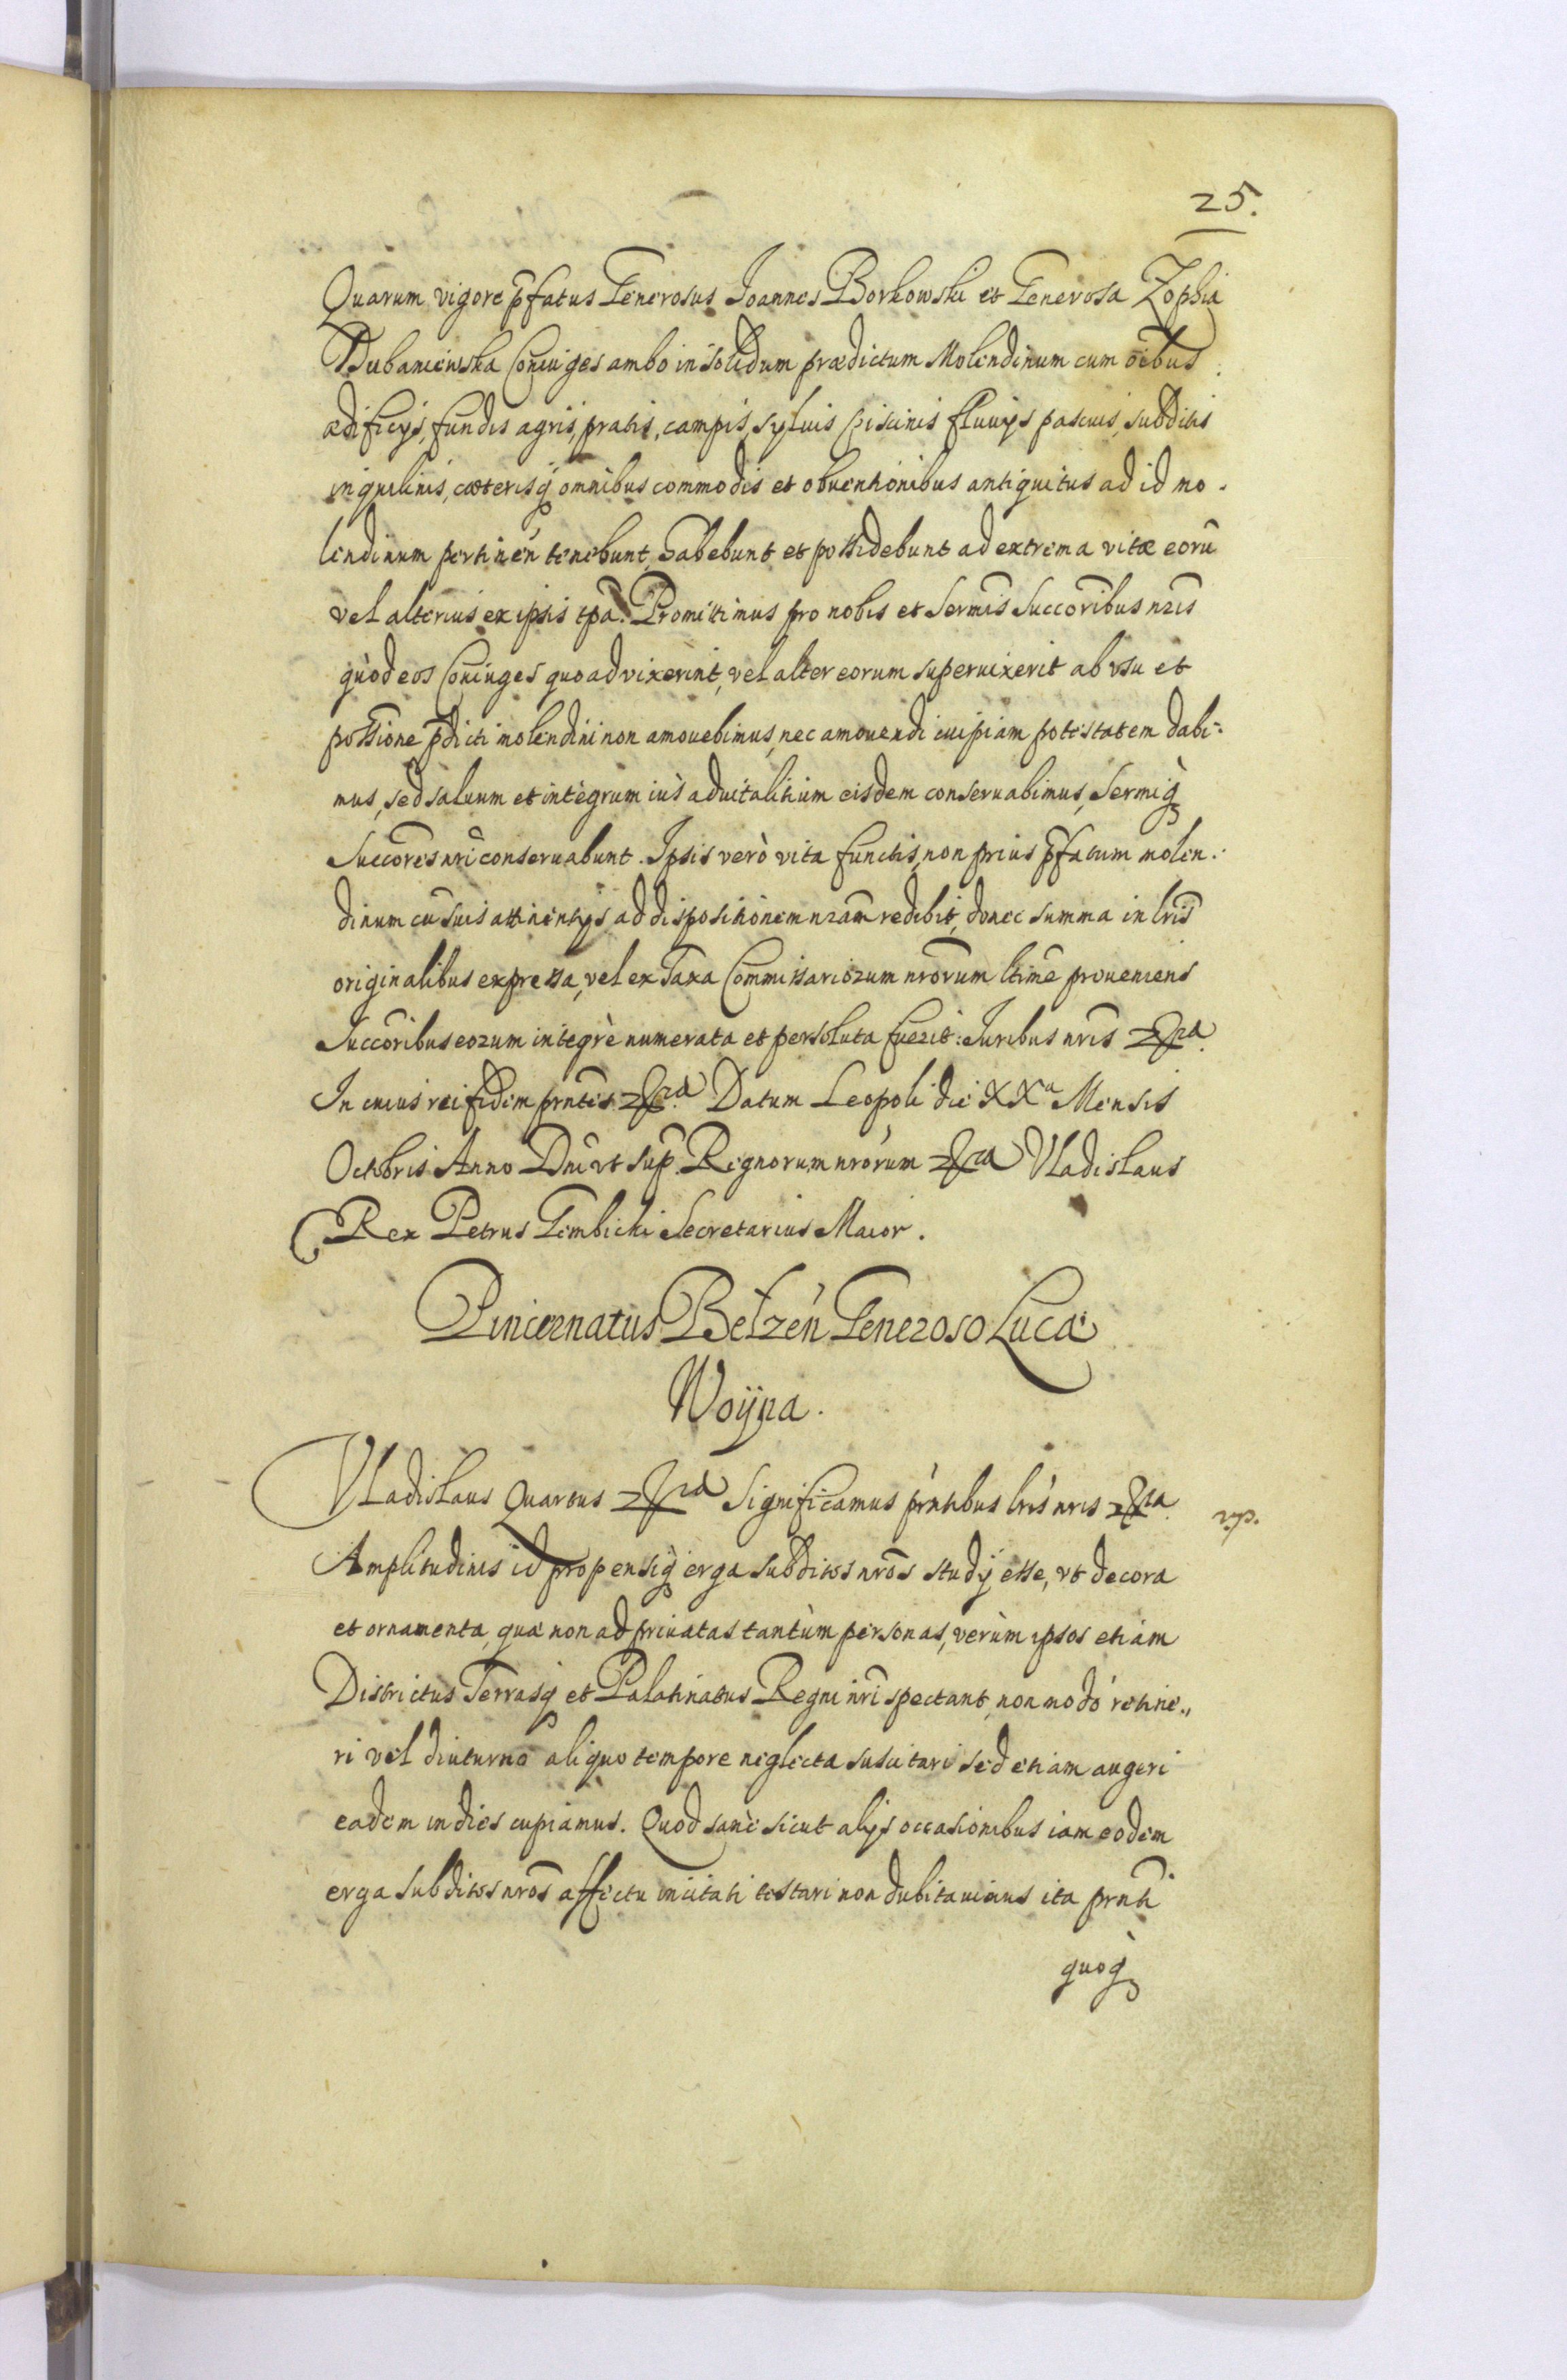 25.
Quarum vigore p̃fatus Generosus Joannes Borkowski et Generosa Zophia
Dubaniewska Coniuges ambo insolidum prædictum Molendinum cum oĩbus
ædificijs, fundis agris, pratis, campis, syluis piscinis fluuijs pascuis, subditis
inquilinis, cæterisq́ omnibus commodis et obuentionibus antiquitus ad id mo-
lendinum pertineń tenebunt, habebunt et possidebunt ad extrema vitæ eorũ
vel alterius ex ipsis tp̃a. Promittimus pro nobis et Serm̃is Succor̃ibus nr̃is
quòd eos Coniuges quoad vixerint, vel alter eorum superuixerit ab vsu et
poss̃ione p̃dicti molendini non amouebimus, nec amouendi cuipiam potestatem dabi=
mus, sed saluum et integrum ius aduitalitium eisdem conseruabimus, Serm̃iq̀
Succor̃es nr̃i conseruabunt. Ipsis verò vita functis, non prius p̃fatum molen-
dinum cũ suis attinentijs ad dispositionem nr̃am redibit, donec summa in lr̃is
originalibus expressa, vel ex Taxa Commissariorum nr̃orum ltime proueniens
Succor̃ibus eorum integrè numerata et persoluta fuerit: Iuribus nr̃is &ra.
In cuius rei fidem prñtes &ra. Datum Leopoli die XXa Mensis
Octobris Anno Dñi vt sup. Regnorum nr̃orum &ra Vladislaus
Rex Petrus Gembicki Secretarius Maior.
Pincernatus Belzeń Generoso Lucæ
Woyna.
Vladislaus Quartus &ra Significamus prñtibus lr̃is nr̃is &ra.
Amplitudinis id propensiq̀ erga subditos nr̃os studij esse, vt decora
et ornamenta, quæ non ad priuatas tantùm personas, verùm ipsos etiam
Districtus Terrasq́ et Palatinatus Regni nr̃i spectant, non modo retine„
ri vel diuturno aliquo tempore neglecta suscitari sed etiam augeri
eadem in dies cupiamus. Quod sanè sicut alijs occasionibus iam eodem
erga subditos nr̃os affectu incitati testari non dubitauimus ita prñti
quoq̀